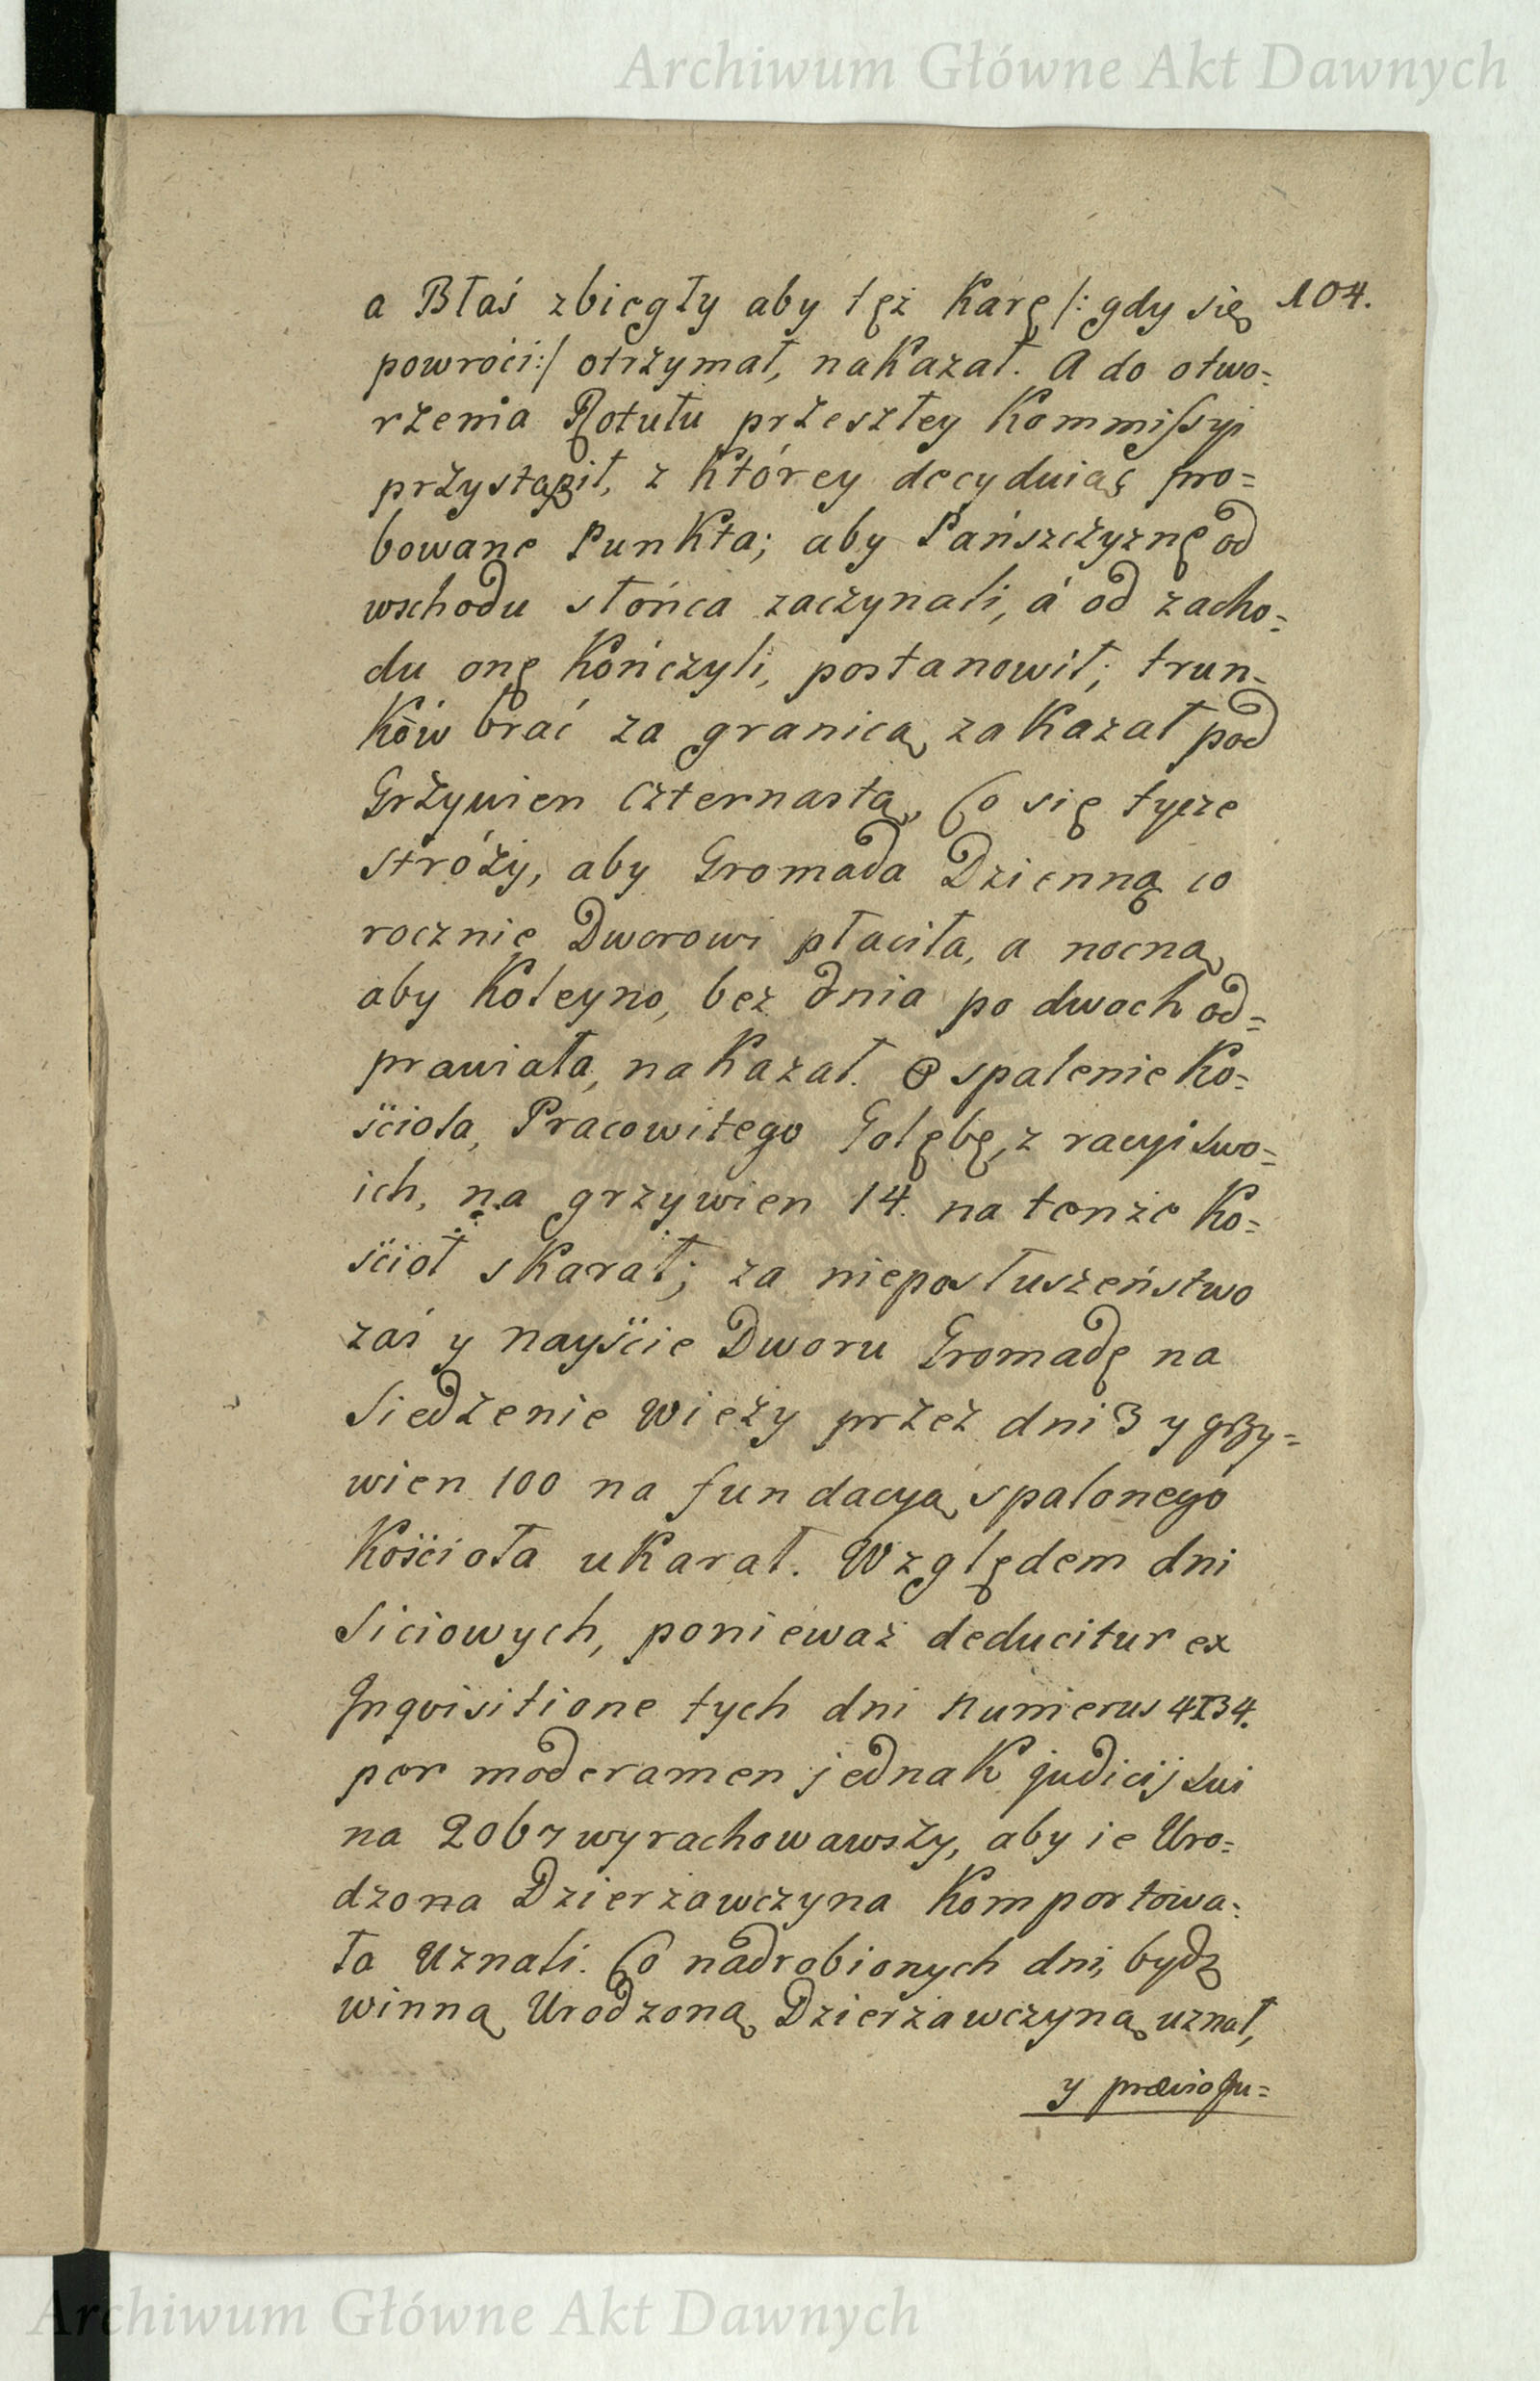 Archiwum Główne Akt Dawnych
104.
a Błaś zbiegły aby tęż Karę /: gdy się
powroci :/ otrzymał, nakazał. A do otwo=
rzenia Rotułu przeszłey Kommissyi
przystąpił, z Którey decyduiąc pro=
bowane Punkta; aby Pańszczyznę od
wschodu słońca zaczynali, á od zacho=
du onę Kończyli, postanowił; trun=
Ków brać za granicą zakazał pod
Grzywien czternastą, Co się tycze
stróży, aby Gromada Dzienną co
rocznie Dworowi płaciła, a nocną
aby Koleyno, bez dnia po dwoch od=
prawiała, nakazał. O spalenie Ko=
ścioła, Pracowitego Gołębę, z racyi swo=
ich, na grzywien 14. na tenże Ko=
ścioł skarał; za nieposłuszeństwo
zaś y nayście Dworu Gromadę na
Siedzenie Wieży przez dni 3 y grzy=
wien 100 na fundacyą spalonego
Kościoła ukarał. Względem dni
Siciowych, ponieważ deducitur ex
Inqvisitione tych dni numerus 4134.
per moderamen jednak judicij sui
na 2067 wyrachowawszy, aby ie Uro=
dzona Dzierżawczyna Komportowa=
ła Uznali. Co nadrobionych dni, bydz
winną Urodzoną Dzierżawczyną uznał,
y prævio Ju=
Archiwum Główne Akt Dawnych